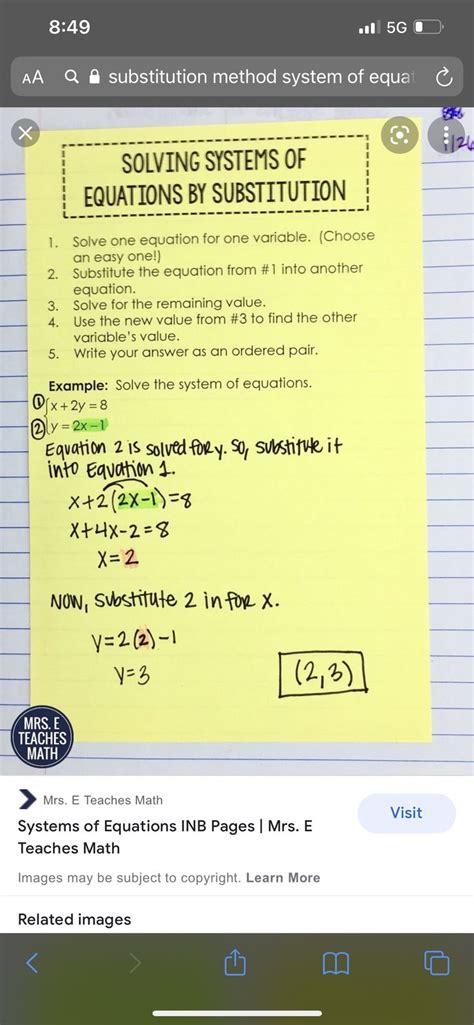 8:49
5G
AA
substitution method system of equat
SOLVING SYSTEMS OF
EQUATIONS BY SUBSTITUTION
1. Solve one equation for one variable. (Choose
an easy one!)
2. Substitute the equation from #1 into another
equation.
3. Solve for the remaining value.
4. Use the new value from #3 to find the other
variable's value.
5. Write your answer as an ordered pair.
Example: Solve the system of equations.
① x + 2y = 8
② y = 2x – 1
Equation 2 is solved for y. So, substitute it
into Equation 1.
x+2(2x-1)=8
x+4x-2=8
x=2
NOW, substitute 2 in for x.
y=2(2)-1
y=3
(2,3)
MRS. E
TEACHES
MATH
Mrs. E Teaches Math
Visit
Systems of Equations INB Pages | Mrs. E
Teaches Math
Images may be subject to copyright. Learn More
Related images